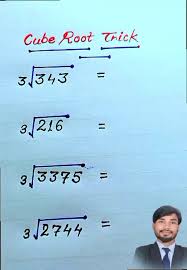 Cube Root Trick
3√343 =
3√216 =
3√3375 =
3√2744 =